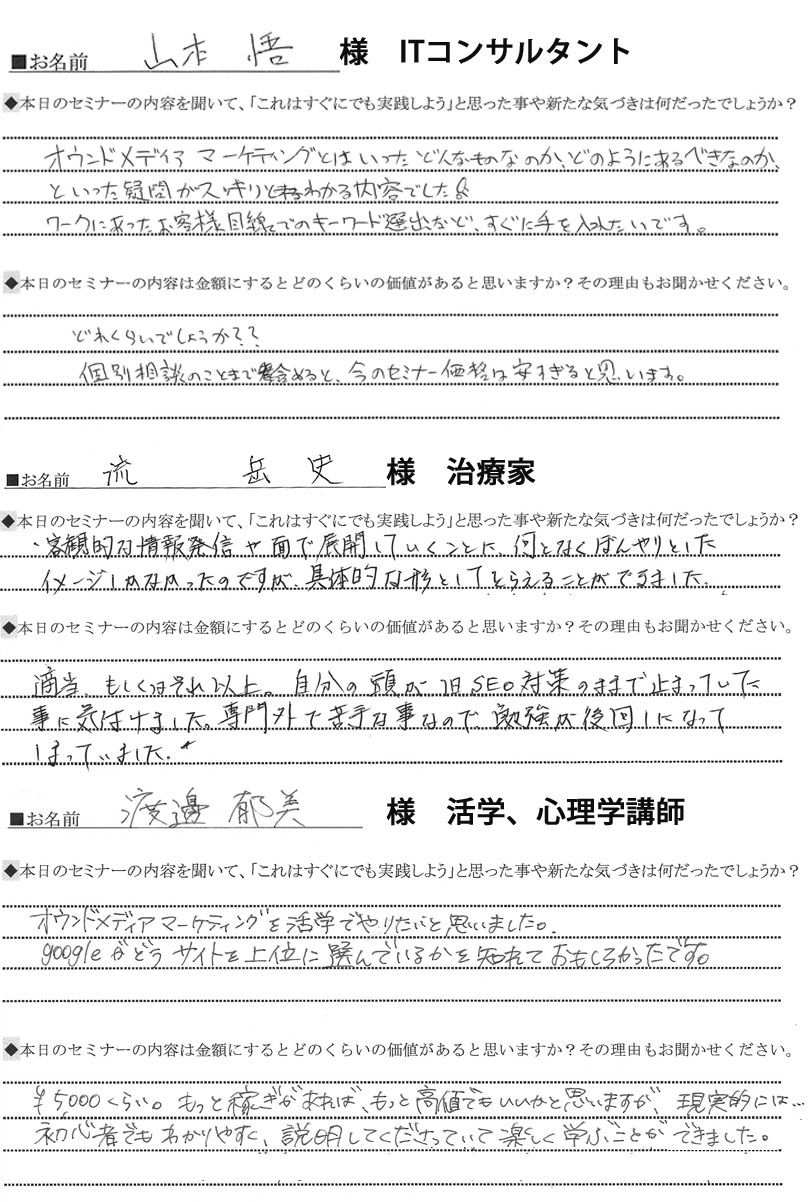 ■お名前 山本 悟 様 ITコンサルタント
◆本日のセミナーの内容を聞いて、「これはすぐにでも実践しよう」と思った事や新たな気づきは何だったでしょうか？
オウンドメディア マーケティングとはいったどんなものなのか、どのようにあるべきなのか、
といった疑問がスッキリとわかる内容でした！
ワークにあったお客様目線でのキーワード選出など、すぐに手を入れたいです。
◆本日のセミナーの内容は金額にするとどのくらいの価値があると思いますか？その理由もお聞かせください。
どれくらいでしょうか？？
個別相談のことまで含めると、今のセミナー価格は安すぎると思います。
■お名前 流 岳史 様 治療家
◆本日のセミナーの内容を聞いて、「これはすぐにでも実践しよう」と思った事や新たな気づきは何だったでしょうか？
・客観的な情報発信や面で展開していくことに、何となくぼんやりとした
イメージしかなかったのですが、具体的な形としてとらえることができました。
◆本日のセミナーの内容は金額にするとどのくらいの価値があると思いますか？その理由もお聞かせください。
適当、もしくはそれ以上。自分の頭が旧SEO対策のままで止まっていた
事に気付けました。専門外で苦手な事なので勉強が後回しになって
しまっていました。
■お名前 渡邊 郁美 様 活学、心理学講師
◆本日のセミナーの内容を聞いて、「これはすぐにでも実践しよう」と思った事や新たな気づきは何だったでしょうか？
オウンドメディアマーケティングを活学でやりたいと思いました。
googleがどうサイトを上位に選んでいるかを知れておもしろかったです。
◆本日のセミナーの内容は金額にするとどのくらいの価値があると思いますか？その理由もお聞かせください。
¥5,000くらい。もっと稼ぎがあれば、もっと高値でもいいかと思いますが、現実的には…
初心者でもわかりやすく、説明してくださっていて楽しく学ぶことができました。